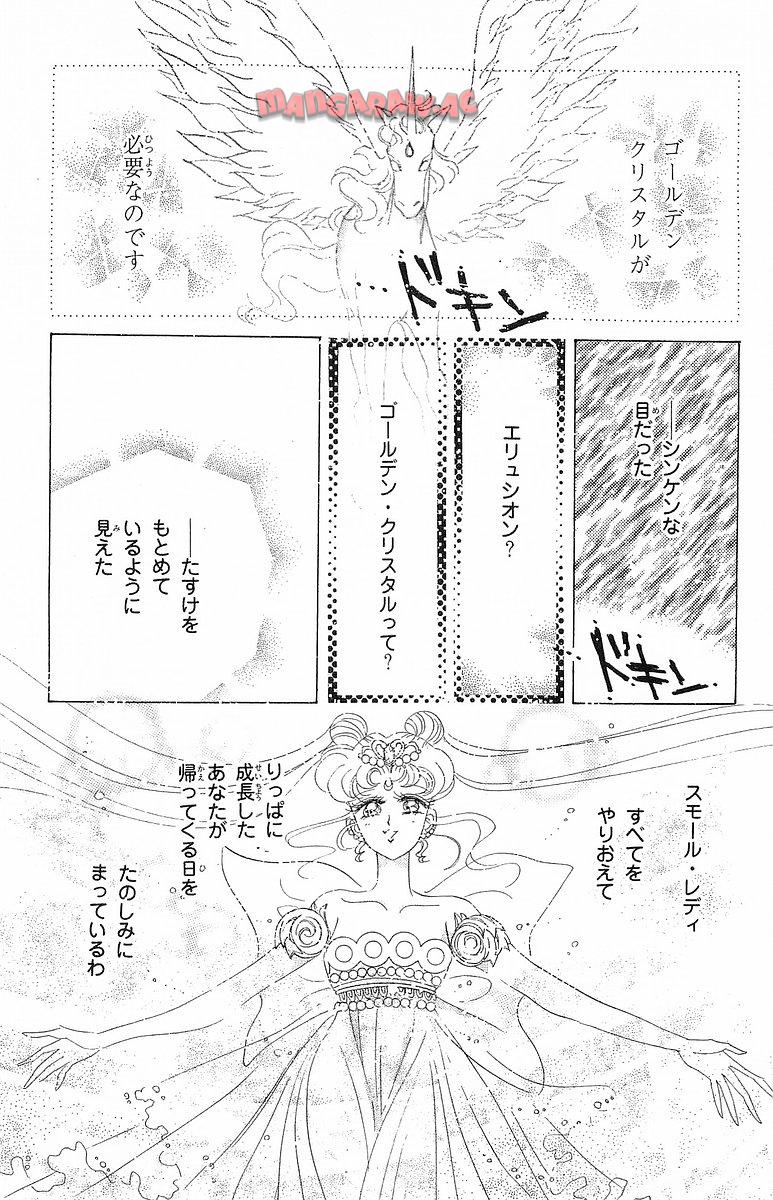 MANGARAWAC
ゴールデン
クリスタルが
必要なのです
…ドキン
――シンケンな
目だった
…ドキン
エリュシオン?
ゴールデン・クリスタルって?
――たすけを
もとめて
いるように
見えた
スモール・レディ
すべてを
やりおえて
りっぱに
成長した
あなたが
帰ってくる日を
たのしみに
まっているわ